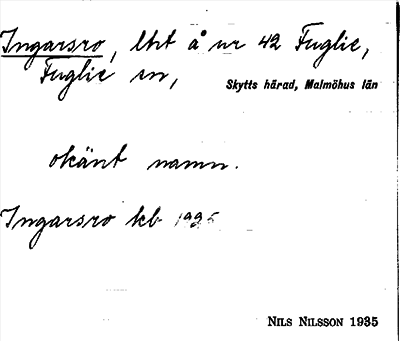 Ingarsro, lht å nr 42 Fuglie,
Fuglie sn,
Skytts härad, Malmöhus län
okänt namn.
Ingarsro kb 1935
NILS NILSSON 1935